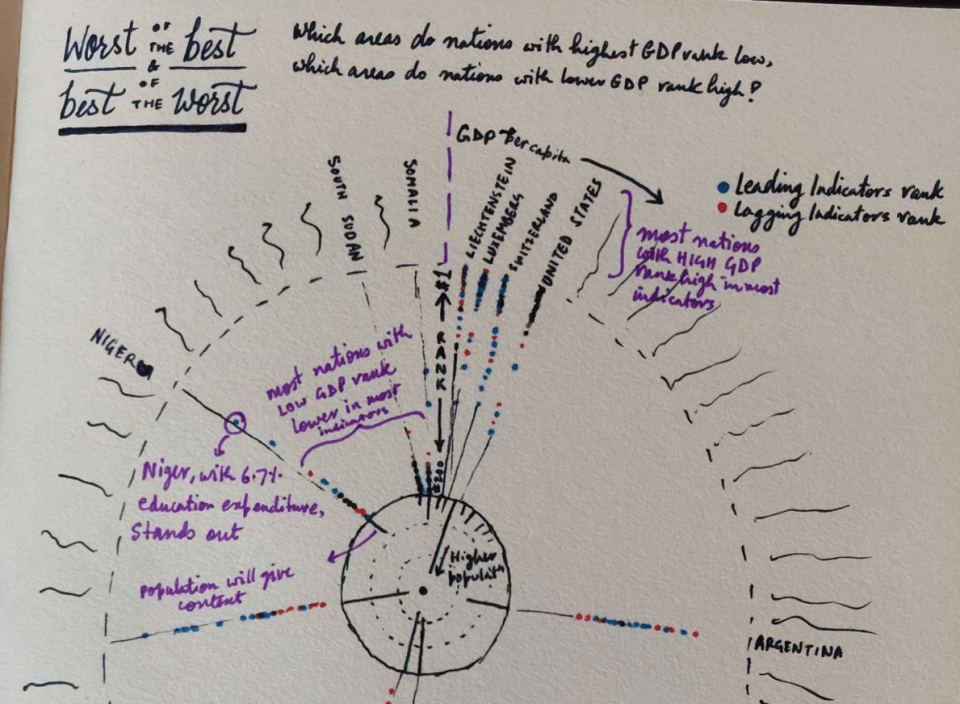 Worst OF THE best
&
best OF THE Worst
Which areas do nations with highest GDP rank low,
which areas do nations with lower GDP rank high?
GDP Per capita
Leading Indicators rank
Lagging Indicators rank
SOUTH SUDAN
SOMALIA
LIECHTENSTEIN
LUXEMBERG
SWITZERLAND
UNITED STATES
most nations
with HIGH GDP
rank high in most
indicators
#1
RANK
#200
NIGER
most nations with
LOW GDP rank
lower in most
indicators
Niger, with 6.7%
education expenditure,
Stands out
Population will give
context
Higher
ARGENTINA